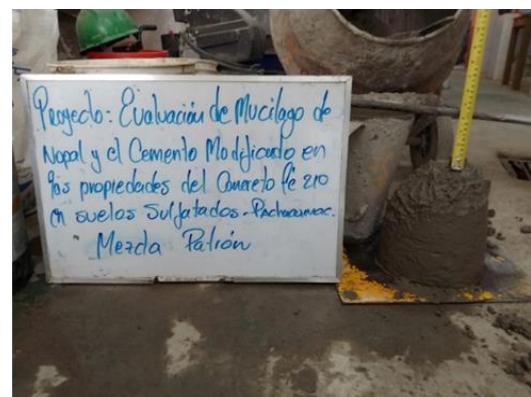 Proyecto: Evaluación de Mucilago de
Nopal y el Cemento Modificado en
las propiedades del Concreto f'c 210
en suelos Sulfatados - Pachacamac.
Mezcla Patrón